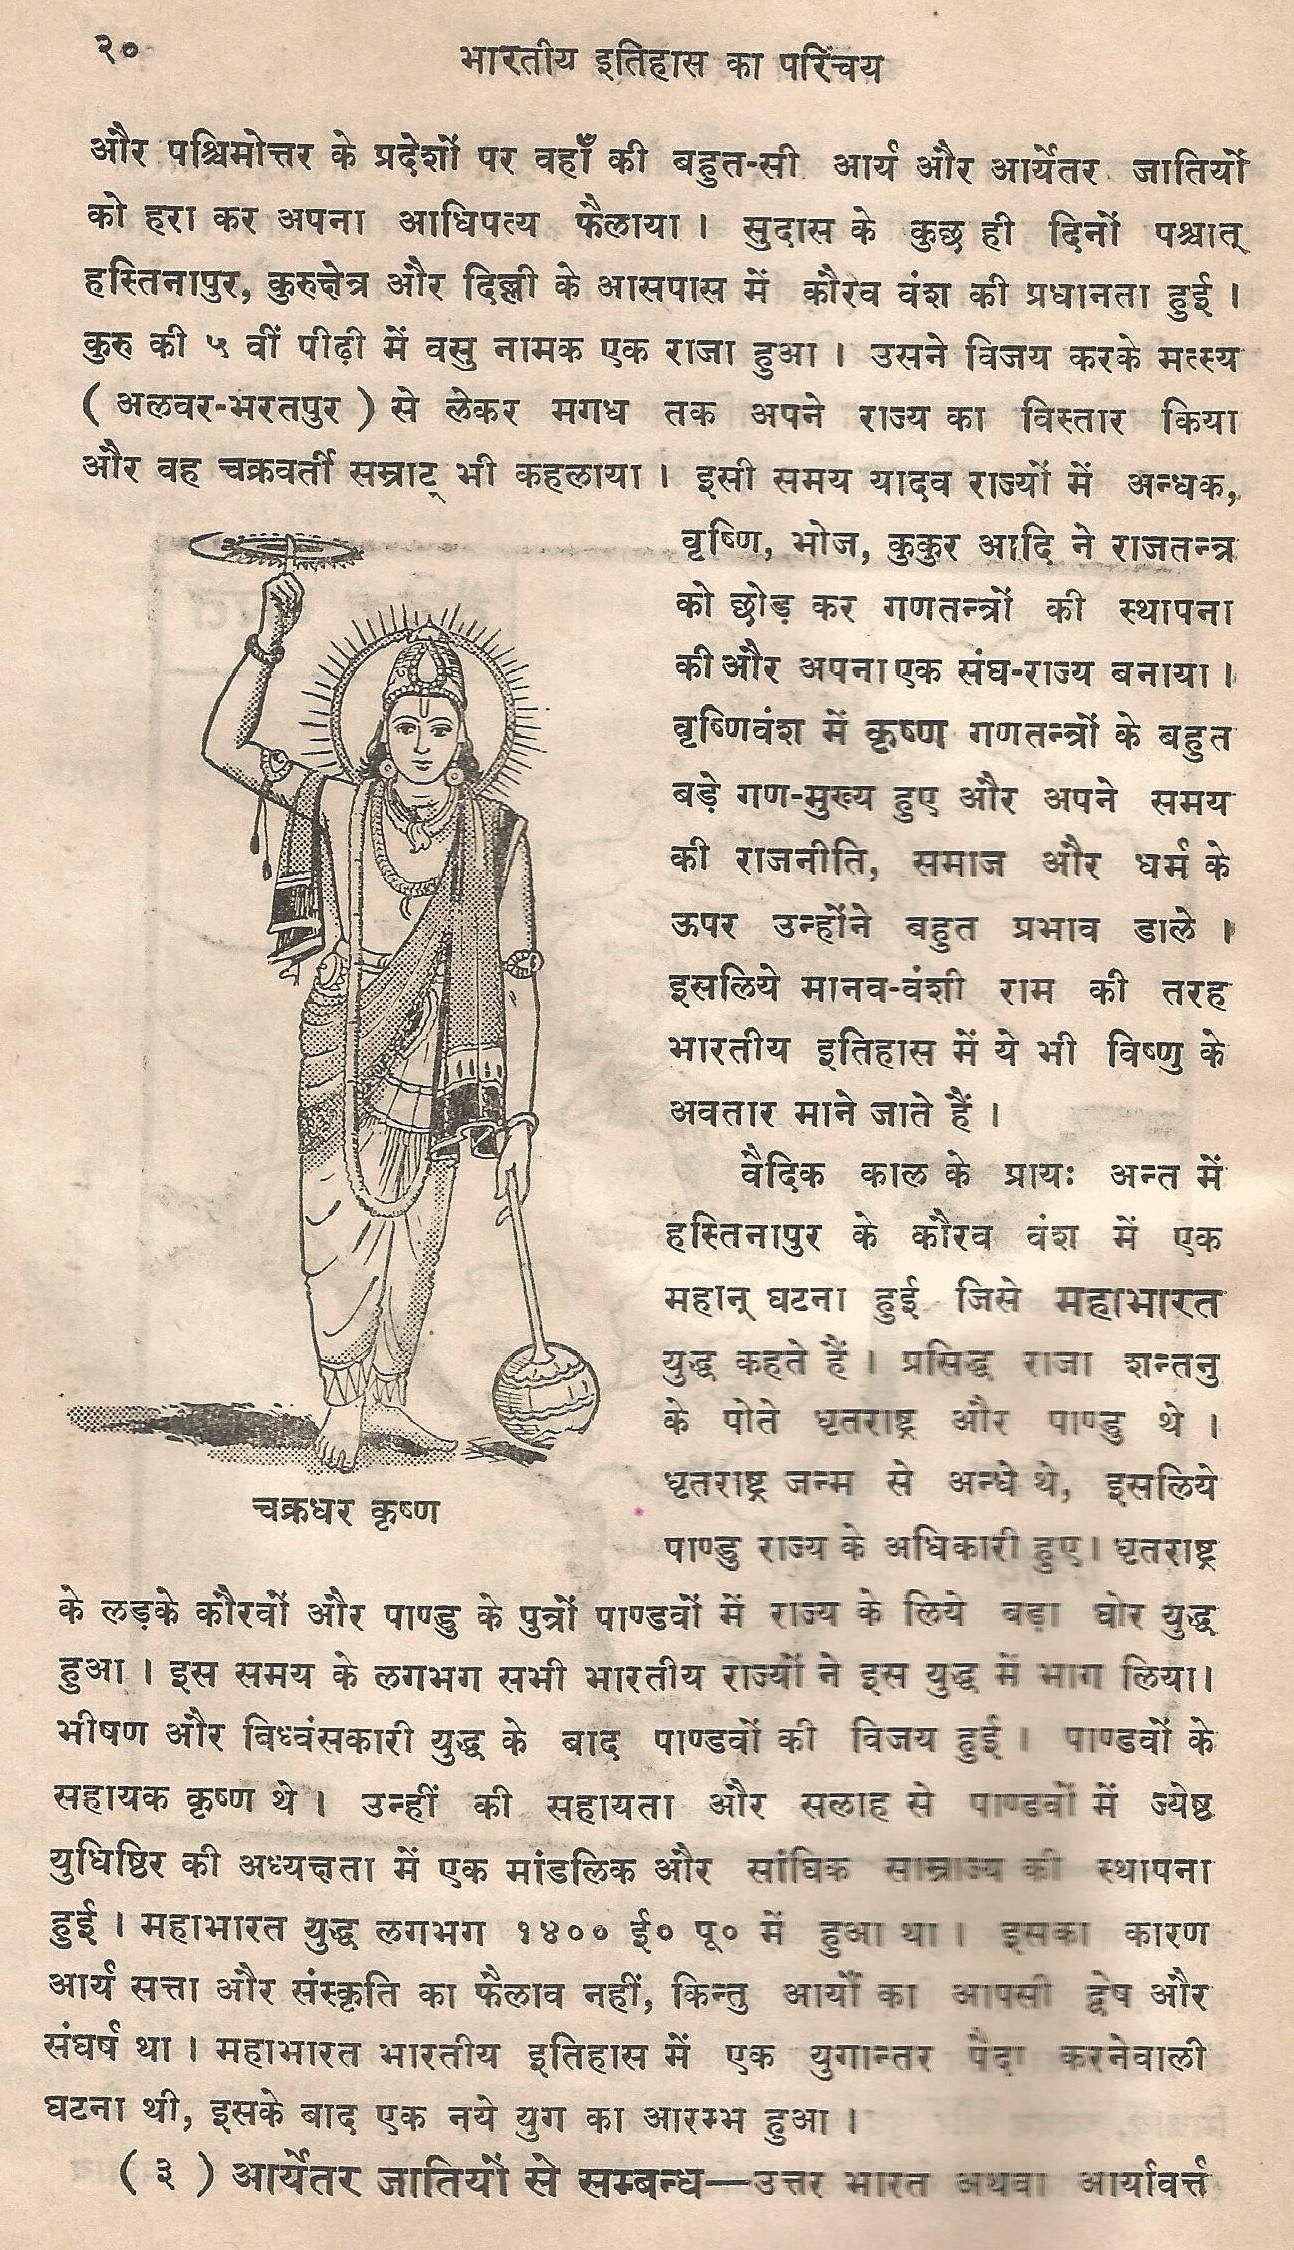 २०
भारतीय इतिहास का परिचय
और पश्चिमोत्तर के प्रदेशों पर वहाँ की बहुत-सी आर्य और आर्येतर जातियों
को हरा कर अपना आधिपत्य फैलाया । सुदास के कुछ ही दिनों पश्चात्
हस्तिनापुर, कुरुक्षेत्र और दिल्ली के आसपास में कौरव वंश की प्रधानता हुई ।
कुरु की ५ वीं पीढ़ी में वसु नामक एक राजा हुआ । उसने विजय करके मत्स्य
( अलवर-भरतपुर ) से लेकर मगध तक अपने राज्य का विस्तार किया
और वह चक्रवर्ती सम्राट् भी कहलाया । इसी समय यादव राज्यों में अन्धक,
वृष्णि, भोज, कुकुर आदि ने राजतन्त्र
को छोड़ कर गणतन्त्रों की स्थापना
की और अपना एक संघ-राज्य बनाया ।
वृष्णिवंश में कृष्ण गणतन्त्रों के बहुत
बड़े गण-मुख्य हुए और अपने समय
की राजनीति, समाज और धर्म के
ऊपर उन्होंने बहुत प्रभाव डाले ।
इसलिये मानव-वंशी राम की तरह
भारतीय इतिहास में ये भी विष्णु के
अवतार माने जाते हैं ।
वैदिक काल के प्रायः अन्त में
हस्तिनापुर के कौरव वंश में एक
महान् घटना हुई जिसे महाभारत
युद्ध कहते हैं । प्रसिद्ध राजा शन्तनु
के पोते धृतराष्ट्र और पाण्डु थे ।
धृतराष्ट्र जन्म से अन्धे थे, इसलिये
पाण्डु राज्य के अधिकारी हुए। धृतराष्ट्र
चक्रधर कृष्ण
के लड़के कौरवों और पाण्डु के पुत्रों पाण्डवों में राज्य के लिये बड़ा घोर युद्ध
हुआ । इस समय के लगभग सभी भारतीय राज्यों ने इस युद्ध में भाग लिया।
भीषण और विध्वंसकारी युद्ध के बाद पाण्डवों की विजय हुई । पाण्डवों के
सहायक कृष्ण थे । उन्हीं की सहायता और सलाह से पाण्डवों में ज्येष्ठ
युधिष्ठिर की अध्यक्षता में एक मांडलिक और सांघिक साम्राज्य की स्थापना
हुई । महाभारत युद्ध लगभग १४०० ई० पू० में हुआ था । इसका कारण
आर्य सत्ता और संस्कृति का फैलाव नहीं, किन्तु आर्यों का आपसी द्वेष और
संघर्ष था । महाभारत भारतीय इतिहास में एक युगान्तर पैदा करनेवाली
घटना थी, इसके बाद एक नये युग का आरम्भ हुआ ।
( ३ ) आर्येतर जातियों से सम्बन्ध—उत्तर भारत अथवा आर्यावर्त्त